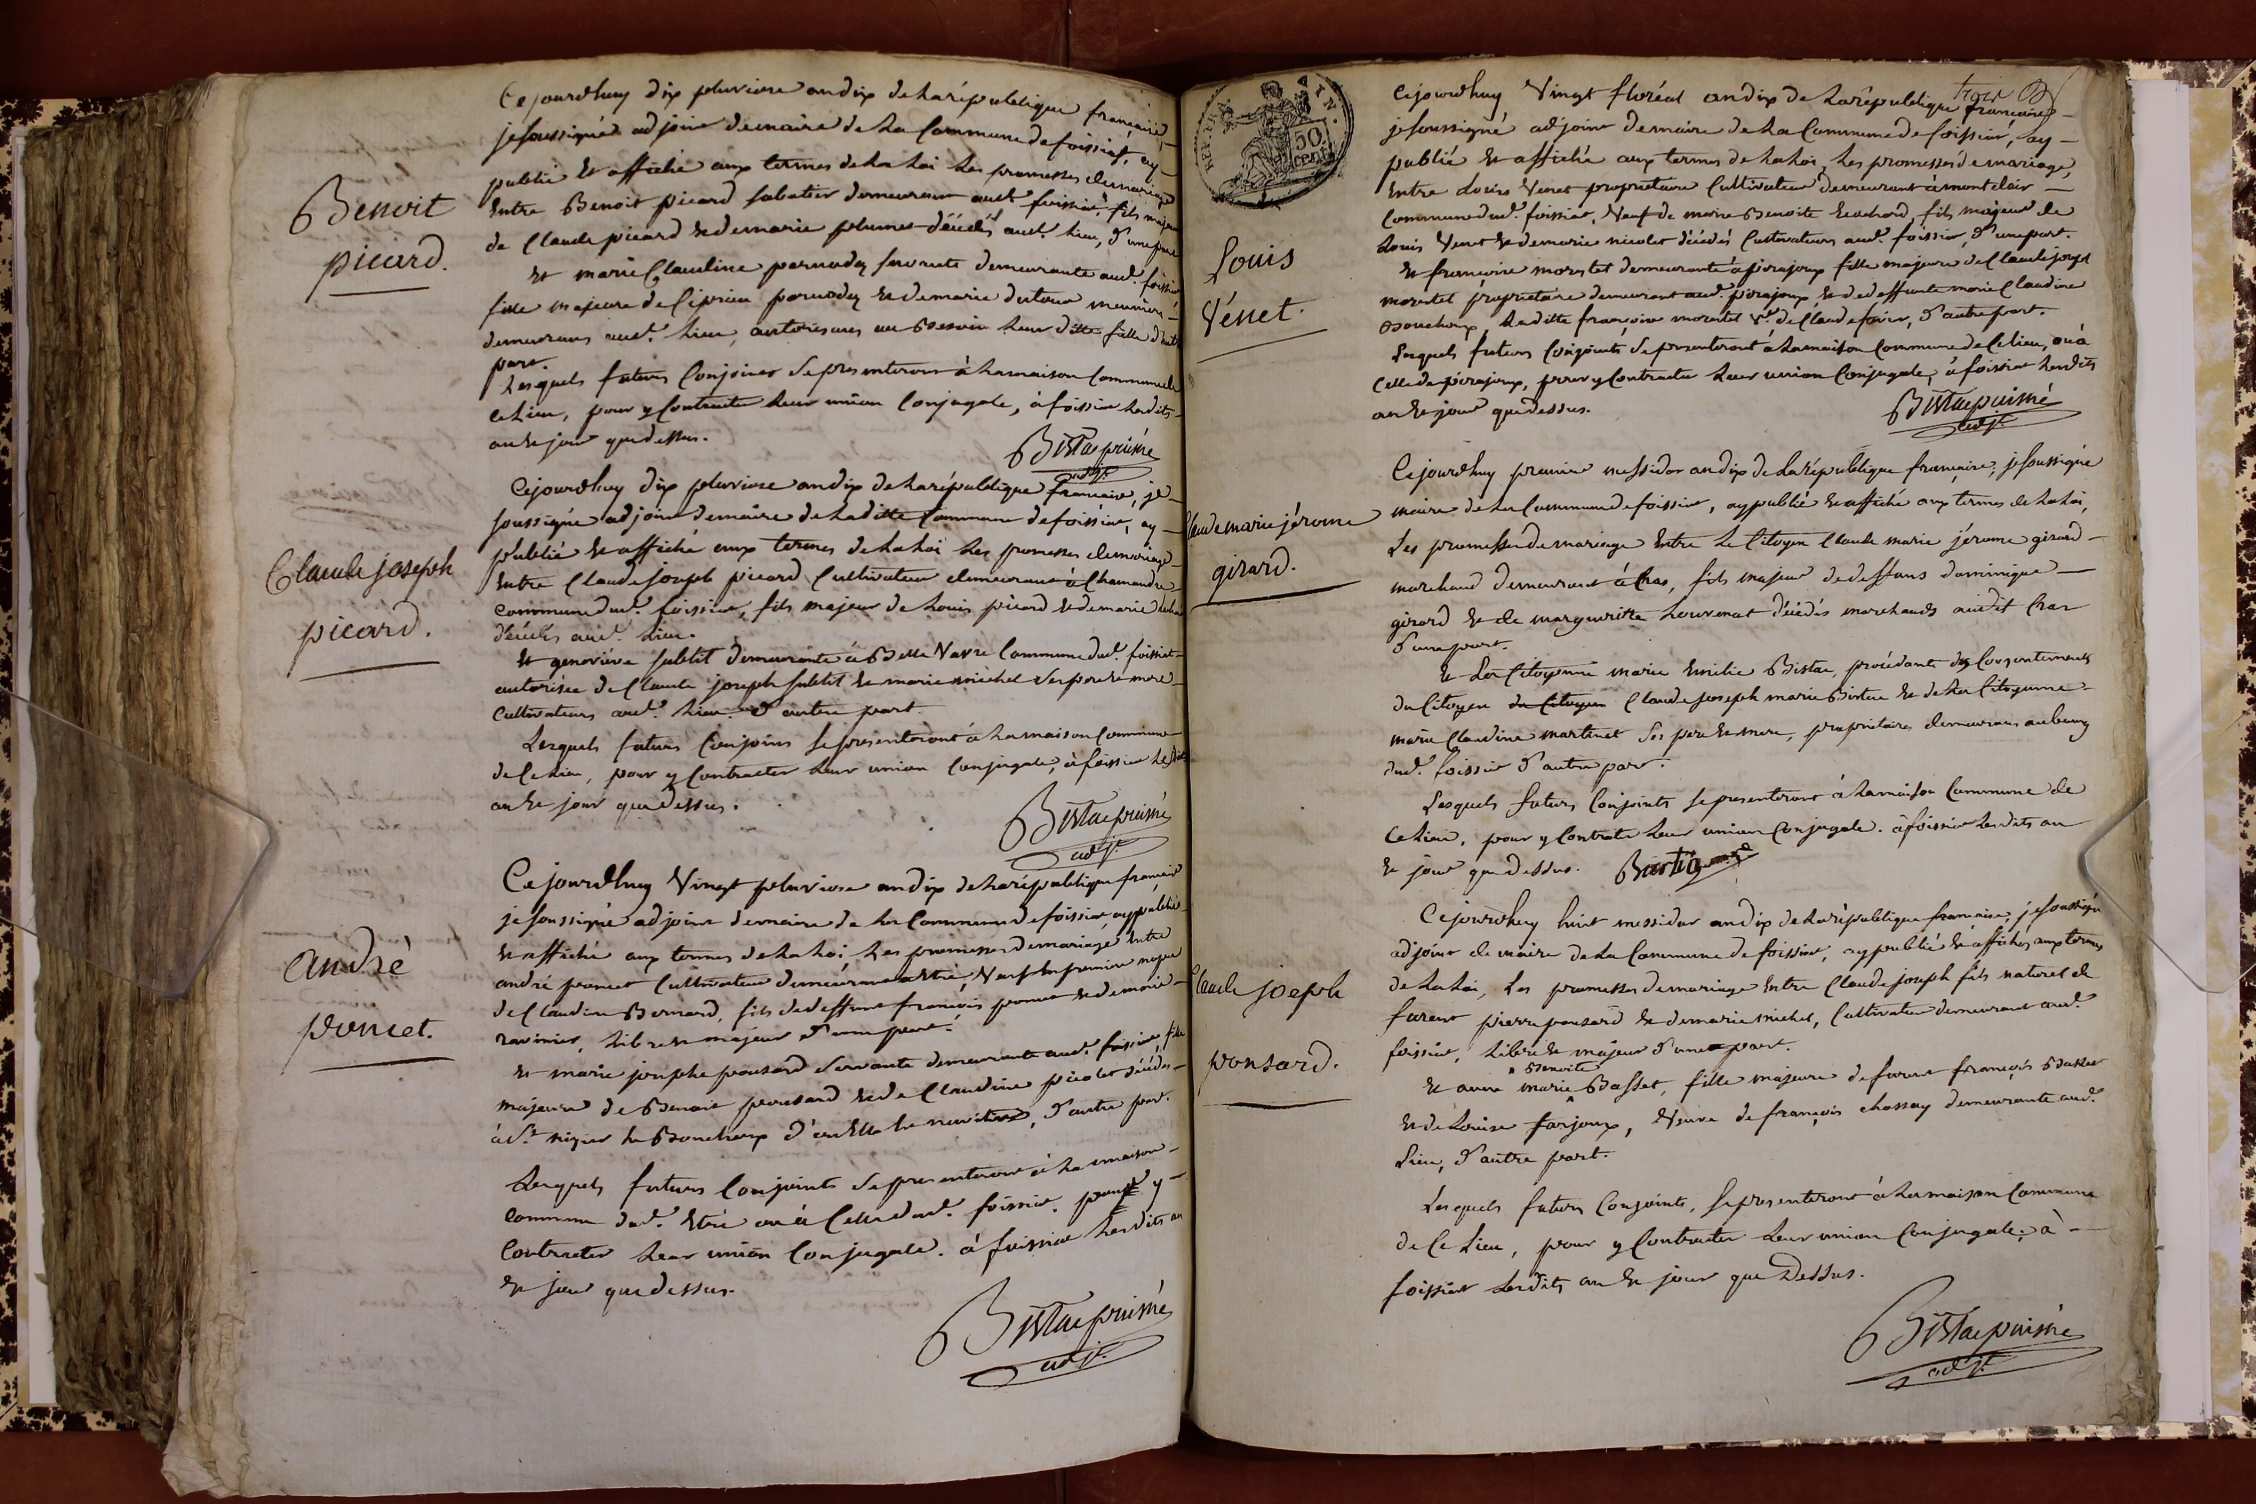 Benoit
picard.
Ce jourdhuy dix pluviose an dix de la république française,
je soussigné adjoint de maire de la Commune de foissiat, ay
publié et affiché aux termes de la loi les promesses de mariage
entre Benoit picard sabatier demeurant audt foissiat, fils majeur
de Claude picard et de marie plumet décédés audt. lieu, d'une part
et marie Claudine servante demeurante audt. foissiat
fille majeure de et de marie dutour meunier
demeurans audt. lieu, autorisans au besoin leur ditte fille d'autre
part.
Lesquels futurs Conjoints se presenteront à la maison Commune de
ce lieu, pour y Contracter leur union Conjugale, à foissiat lesdits
an et jour que dessus.
Bistac puisné
adjt.
Claude joseph
picard.
Cejourdhuy dix pluviose an dix de la république française, je
soussigné adjoint de maire de laditte Commune de foissiat, ay
publié et affiché aux termes de la loi les promesses de mariage
Entre Claude joseph picard Cultivateur demeurant à Chamandre
commune dudt. foissiat, fils majeur de Louis picard et de marie
décédés audt. lieu.
et geneviéve sublit demeurante à Belle Vavre Commune dudt. foissiat
autorisée de Claude joseph sublit et marie michel ses pere et mere
Cultivateurs audt. lieu. d'autre part
Lesquels futurs Conjoins se presenteront à la maison Commune
de Ce lieu, pour y Contracter leur union Conjugale, à foissiat lesdits
an et jour que dessus.
Bistac puisné
adjt.
andré
poncet.
Ce jourdhuy Vingt pluviose an dix de la république française
je soussigné adjoint de maire de la Commune de foissiat, ay publié
et affiché aux termes de la loi, les promesses de mariage entre
andré poncet Cultivateur demeurant a etré, Veuf en premiere noces
de Claudine Bernard, fils de deffunt françois poncet et de marie
ravinier, libre et majeur d'une part.
et marie josephe ponsard servante demeurante audt. foissiat, fille
majeure de Benoit ponsard et de Claudine picolet décédés
à st. nizier le Bouchoux d'ou elle est d'autre part.
Lesquels futurs Conjoints se presenteront à la maison
commune dudt. Etré ou à Celle dudt. foissiat. pour y
Contracter leur union Conjugale. à foissiat lesdits an
et jour que dessus.
Bistac puisné
adjt.
AIN.
50
cent.
trois
Louis
Vénet.
Cejourdhuy Vingt floréal an dix de la république française
je soussigné adjoint de maire de la Commune de foissiat, ay
publié et affiché aux termes de la loi, les promesses de mariage,
Entre Louis Venet proprietaire Cultivateur demeurant à montclair
Commune dudt. foissiat, Veuf de marie Benoite fils majeur de
Louis Venet et de marie nicolet décédés Cultivateurs audt. foissiat, d'une part.
et françoise moretet demeurante à pirajoux fille majeure de Claude joseph
moretet proprietaire demeurant audt. pirajoux et de deffunte marie Claudine
Bouchoux, laditte françoise moretet Ve de Claude d'autre part.
Lesquels futurs Conjoints se presenteront à la maison Commune de Ce lieu, ou à
Celle de pirajoux, pour y Contracter leur union Conjugale, à foissiat lesdits
an et jour que dessus.
Bistac puisné
adjt.
Claude marie jérome
girard.
Cejourdhuy premier messidor an dix de la république française, je soussigné
maire de la Commune de foissiat, ay publié et affiché aux termes de la loi,
Les promesses de mariage Entre le Citoyen Claude marie jérome girard
marchand demeurant à Cras, fils majeur de deffuns dominique
girard et de margueritte décédés marchands audit Cras
d'une part.
et La Citoyenne marie Emilie Bistac, procédante des Consentements
du Citoyen du Citoyen Claude joseph marie Bistac et de la Citoyenne
marie Claudine martinet ses pere et mere, proprietaires demeurans au bourg
dudt. foissiat d'autre part.
Lesquels futurs Conjoints se presenteront à la maison Commune de
Ce lieu, pour y Contracter leur union Conjugale. à foissiat lesdits an
et jour que dessus.
Claude joseph
ponsard.
Cejourdhuy huit messidor an dix de la république française, je soussigné
adjoint de maire de la Commune de foissiat, ay publié et affiché aux termes
de la loi, Les promesses de mariage Entre Claude joseph fils naturel de
furent pierre ponsard et de marie michel, Cultivateur demeurant audt.
foissiat, libre et majeur d'une part.
Benoite
et anne marie Basset, fille majeure de furent françois Basset
et de Louise farjoux, Veuve de françois chossay demeurante audt.
Lieu, d'autre part.
Lesquels futurs Conjoints, se presenteront à la maison Commune
de Ce Lieu, pour y Contracter leur union Conjugale, à
foissiat lesdits an et jour que dessus.
Bistac puisné
adjt.